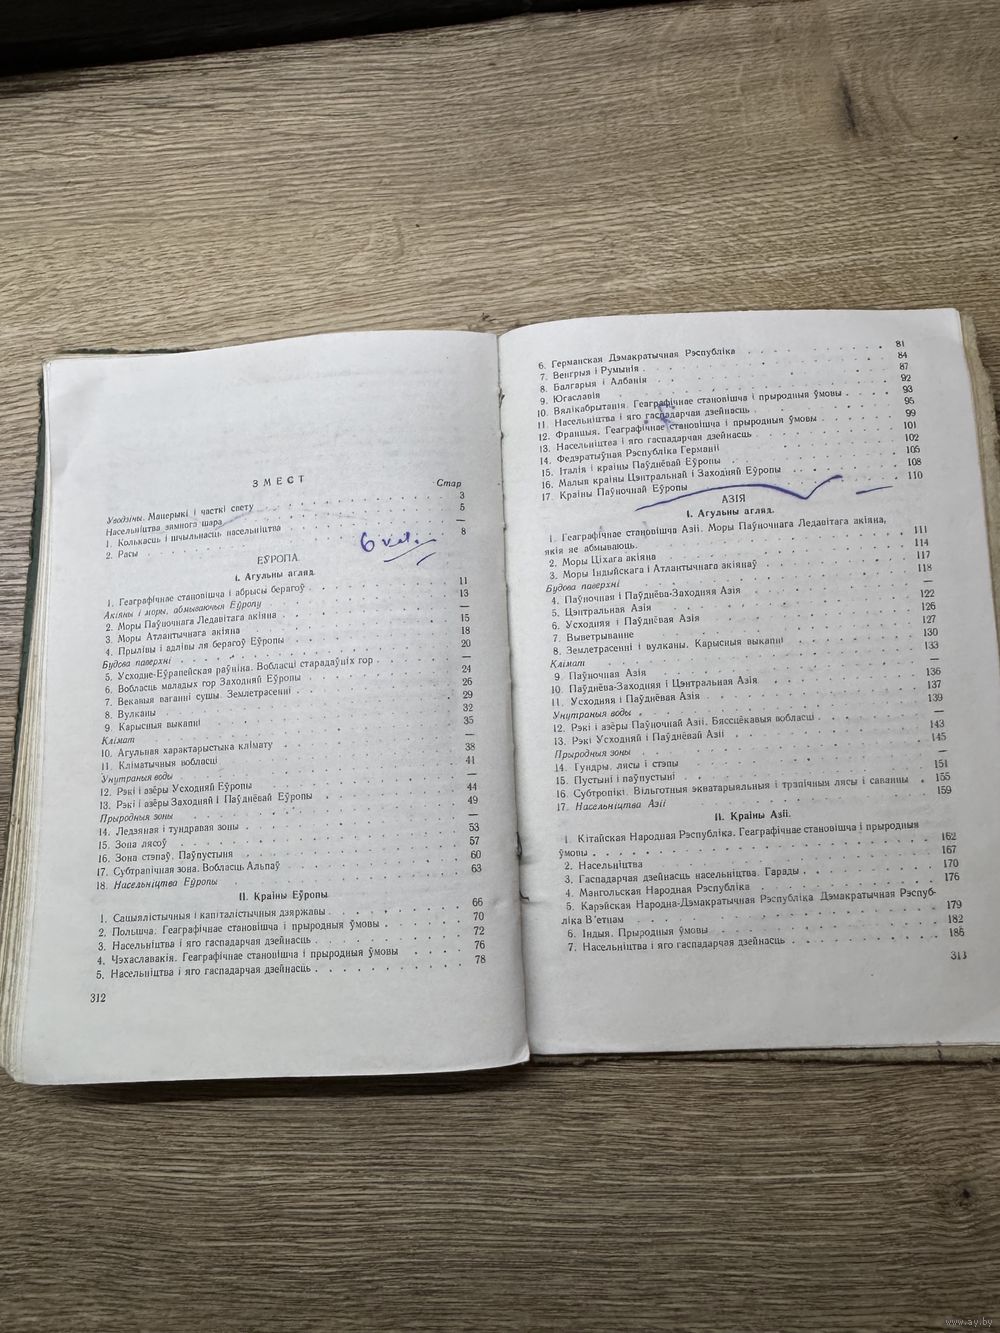 ЗМЕСТ
Стар
Уводзіны. Мацерыкі і часткі свету . . . . . . . . 3
Насельніцтва зямного шара . . . . . . . . 5
1. Колькасць і шчыльнасць насельніцтва . . . . . . . . —
2. Расы . . . . . . . . 8
6 кл.
ЕЎРОПА
I. Агульны агляд
1. Геаграфічнае становішча і абрысы берагоў . . . . . . . . 11
Акіяны і моры, абмываючыя Еўропу . . . . . . . . 13
2. Моры Паўночнага Ледавітага акіяна . . . . . . . . —
3. Моры Атлантычнага акіяна . . . . . . . . 15
4. Прылівы і адлівы ля берагоў Еўропы . . . . . . . . 18
Будова паверхні . . . . . . . . 20
5. Усходне-Еўрапейская раўніна. Вобласці старадаўніх гор . . . . . . . . —
6. Вобласць маладых гор Заходняй Еўропы . . . . . . . . 24
7. Векавыя ваганні сушы. Землетрасенні . . . . . . . . 26
8. Вулканы . . . . . . . . 29
9. Карысныя выкапні . . . . . . . . 32
Клімат . . . . . . . . 35
10. Агульная характарыстыка клімату . . . . . . . . —
11. Кліматычныя вобласці . . . . . . . . 38
Унутраныя воды . . . . . . . . 41
12. Рэкі і азёры Усходняй Еўропы . . . . . . . . —
13. Рэкі і азёры Заходняй і Паўднёвай Еўропы . . . . . . . . 44
Прыродныя зоны . . . . . . . . 49
14. Ледзяная і тундравая зоны . . . . . . . . —
15. Зона лясоў . . . . . . . . 53
16. Зона стэпаў. Паўпустыня . . . . . . . . 57
17. Субтрапічная зона. Вобласць Альпаў . . . . . . . . 60
18. Насельніцтва Еўропы . . . . . . . . 63
II. Краіны Еўропы
1. Сацыялістычныя і капіталістычныя дзяржавы . . . . . . . . 66
2. Польшча. Геаграфічнае становішча і прыродныя ўмовы . . . . . . . . 70
3. Насельніцтва і яго гаспадарчая дзейнасць . . . . . . . . 72
4. Чэхаславакія. Геаграфічнае становішча і прыродныя ўмовы . . . . . . . . 76
5. Насельніцтва і яго гаспадарчая дзейнасць . . . . . . . . 78
312
6. Германская Дэмакратычная Рэспубліка . . . . . . . . 81
7. Венгрыя і Румынія . . . . . . . . 84
8. Балгарыя і Албанія . . . . . . . . 87
9. Югаславія . . . . . . . . 92
10. Вялікабрытанія. Геаграфічнае становішча і прыродныя ўмовы . . . . . . . . 93
11. Насельніцтва і яго гаспадарчая дзейнасць . . . . . . . . 95
12. Францыя. Геаграфічнае становішча і прыродныя ўмовы . . . . . . . . 99
13. Насельніцтва і яго гаспадарчая дзейнасць . . . . . . . . 101
14. Федэратыўная Рэспубліка Германіі . . . . . . . . 102
15. Італія і краіны Паўднёвай Еўропы . . . . . . . . 105
16. Малыя краіны Цэнтральнай і Заходняй Еўропы . . . . . . . . 108
17. Краіны Паўночнай Еўропы . . . . . . . . 110
АЗІЯ
I. Агульны агляд.
1. Геаграфічнае становішча Азіі. Моры Паўночнага Ледавітага акіяна,
якія яе абмываюць. . . . . . . . . 111
2. Моры Ціхага акіяна . . . . . . . . 114
3. Моры Індыйскага і Атлантычнага акіянаў . . . . . . . . 117
Будова паверхні . . . . . . . . 118
4. Паўночная і Паўднёва-Заходняя Азія . . . . . . . . —
5. Цэнтральная Азія . . . . . . . . 122
6. Усходняя і Паўднёвая Азія . . . . . . . . 126
7. Выветрыванне . . . . . . . . 127
8. Землетрасенні і вулканы. Карысныя выкапні . . . . . . . . 130
Клімат . . . . . . . . 133
9. Паўночная Азія . . . . . . . . —
10. Паўднёва-Заходняя і Цэнтральная Азія . . . . . . . . 136
11. Усходняя і Паўднёвая Азія . . . . . . . . 137
Унутраныя воды . . . . . . . . 139
12. Рэкі і азёры Паўночнай Азіі. Бяссцёкавыя вобласці . . . . . . . . —
13. Рэкі Усходняй і Паўднёвай Азіі . . . . . . . . 143
Прыродныя зоны . . . . . . . . 145
14. Тундры, лясы і стэпы . . . . . . . . —
15. Пустыні і паўпустыні . . . . . . . . 151
16. Субтропікі. Вільготныя экватарыяльныя і трапічныя лясы і саванны . 155
17. Насельніцтва Азіі . . . . . . . . 159
II. Краіны Азіі.
1. Кітайская Народная Рэспубліка. Геаграфічнае становішча і прыродныя
ўмовы . . . . . . . . 162
2. Насельніцтва . . . . . . . . 167
3. Гаспадарчая дзейнасць насельніцтва. Гарады . . . . . . . . 170
4. Мангольская Народная Рэспубліка . . . . . . . . 176
5. Карэйская Народна-Дэмакратычная Рэспубліка Дэмакратычная Рэспуб-
ліка В'етнам . . . . . . . . 179
6. Індыя. Прыродныя ўмовы . . . . . . . . 182
7. Насельніцтва і яго гаспадарчая дзейнасць . . . . . . . . 186
313
www.ay.by